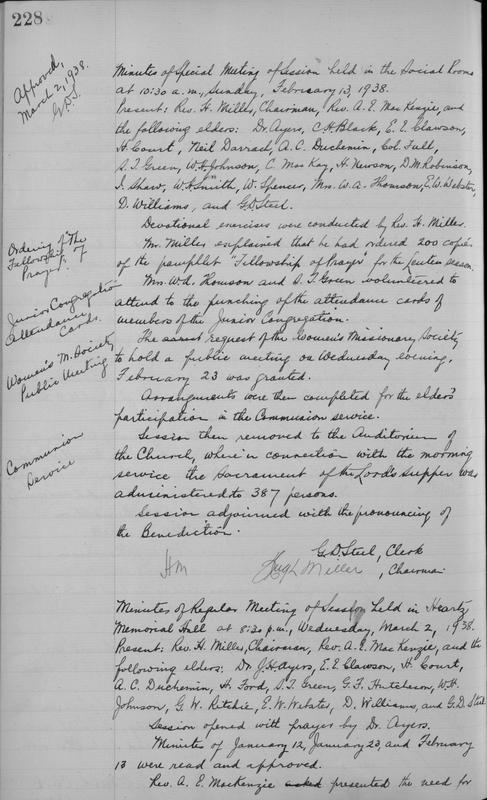 228
Approved,
March 2, 1938.
G.D.S.
Minutes of Special Meeting of Session held in the Social Room
at 10:30 a.m., Sunday, February 13, 1938.
Present: Rev. H. Miller, Chairman, Rev. A. E. MacKenzie, and
the following elders: Dr. Ayers, C. H. Black, E. E. Clawson,
H. Court, Neil Darrach, A. C. Duchemin, Col. Full,
S. T. Green, W. H. Johnson, C. MacKay, H. Newson, D. M. Robinson,
I. Shaw, W. H. Smith, W. Spencer, Mrs. W. A. Thomson, E. W. Webster,
D. Williams, and G. D. Steel.
Devotional exercises were conducted by Rev. H. Miller.
Ordering of "The
Fellowship of
Prayer".
Mr. Miller explained that he had ordered 200 copies
of the pamphlet "Fellowship of Prayer" for the Lenten season.
Junior Congregation
Attendance
Cards.
Mrs. W. A. Thomson and S. T. Green volunteered to
attend to the punching of the attendance cards of
members of the Junior Congregation.
Women's M. Society
Public Meeting
The request of the Women's Missionary Society
to hold a public meeting on Wednesday evening,
February 23 was granted.
Arrangements were then completed for the elders'
participation in the Communion service.
Communion
Service
Session then removed to the Auditorium of
the Church, where in connection with the morning
service the Sacrament of the Lord's Supper was
administered to 387 persons.
Session adjourned with the pronouncing of
the Benediction.
G. D. Steel, Clerk
HM Hugh Miller, Chairman
Minutes of Regular Meeting of Session held in Heartz
Memorial Hall at 8:30 p.m., Wednesday, March 2, 1938.
Present: Rev. H. Miller, Chairman, Rev. A. E. MacKenzie, and the
following elders: Dr. J. H. Ayers, E. E. Clawson, H. Court,
A. C. Duchemin, H. Ford, S. T. Green, G. F. Hutcheson, W. H.
Johnson, G. W. Ritchie, E. W. Webster, D. Williams, and G. D. Steel
Session opened with prayer by Dr. Ayers.
Minutes of January 12, January 23, and February
13 were read and approved.
Rev. A. E. MacKenzie asked presented the need for